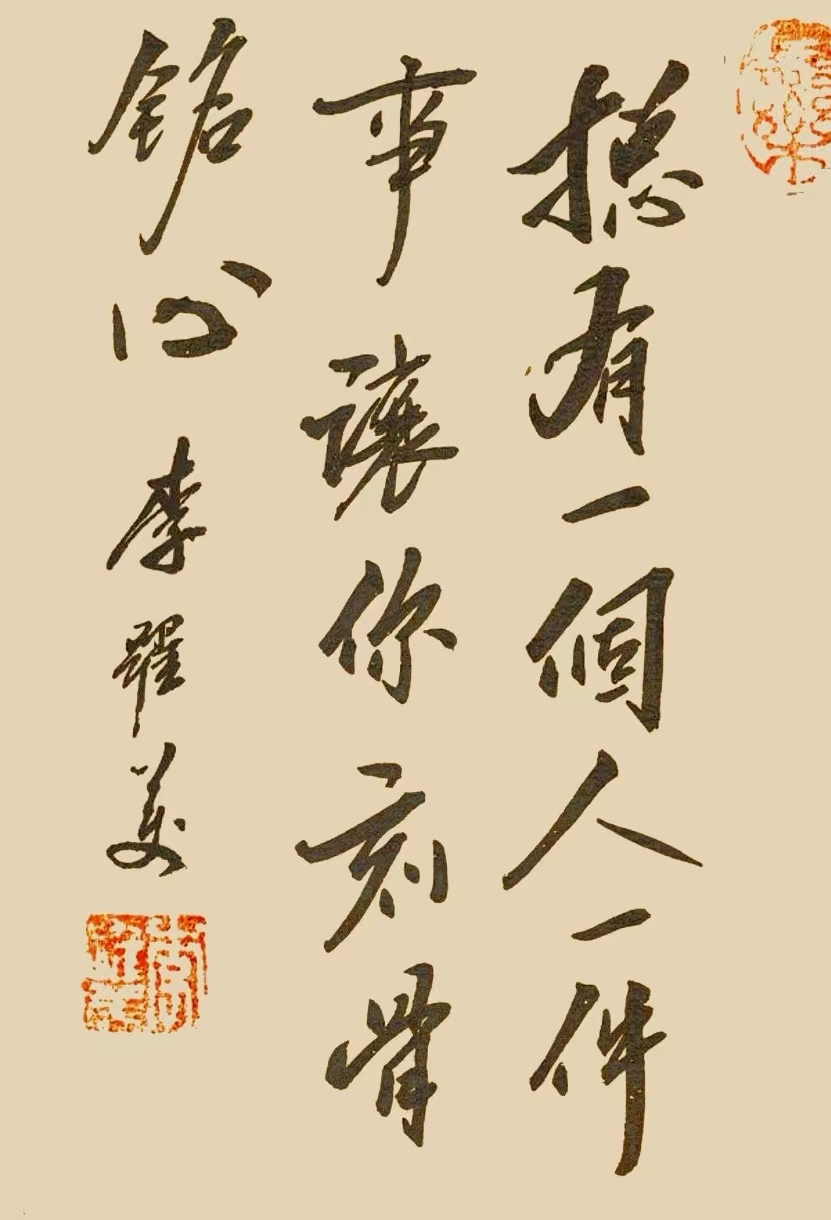 捴有一個人一件
事讓你刻骨
銘心 李